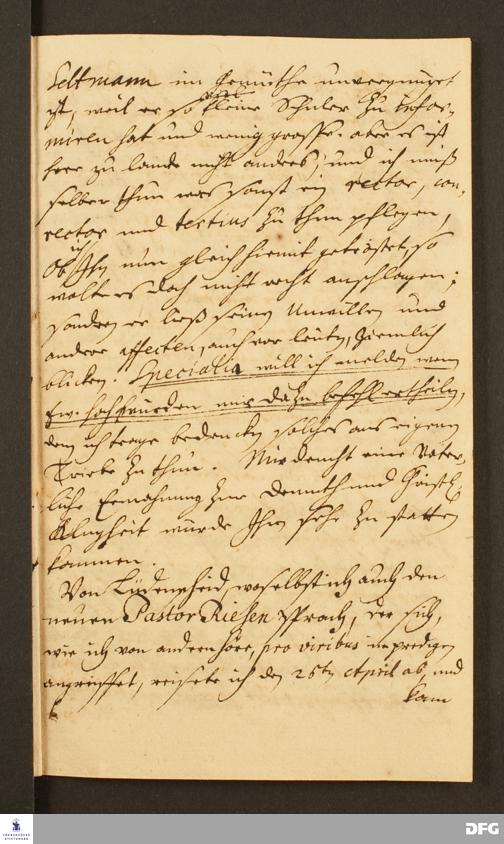 Feltmann im Gemüthe unvergnüget
ist, weil er so viel kleine Schüler zu infor-
miren hat und wenig grosse. aber es ist
hier zu lande nicht anders, und ich muß
selber thun was sonst ein rector, con-
rector und tertius zu thun pflegen,
Ob ich Ihn nun gleich hiemit getröstet, so
wolte es doch nicht recht anschlagen;
sondern er ließ seinen Unwillen und
andere affecten, auch vor leuten, ziemlich
blicken. Specialia will ich melden wenn
Ew. Hochwürden mir dazu befehl ertheilen,
denn ich trage bedencken solches aus eigenem
Triebe zu thun. Mir deucht eine Väter-
liche Ermahnung zur Demuth und Christl.
Klugheit würde Ihm sehr zu statten
kommen.
Von Lüdenscheid, woselbst ich auch den
neuen Pastor Riesen sprach, der sich,
wie ich von andern höre, pro viribus im predigen
angreiffet, reisete ich den 26ten April ab, und
kam
FRANCKESCHE
STIFTUNGEN
DFG